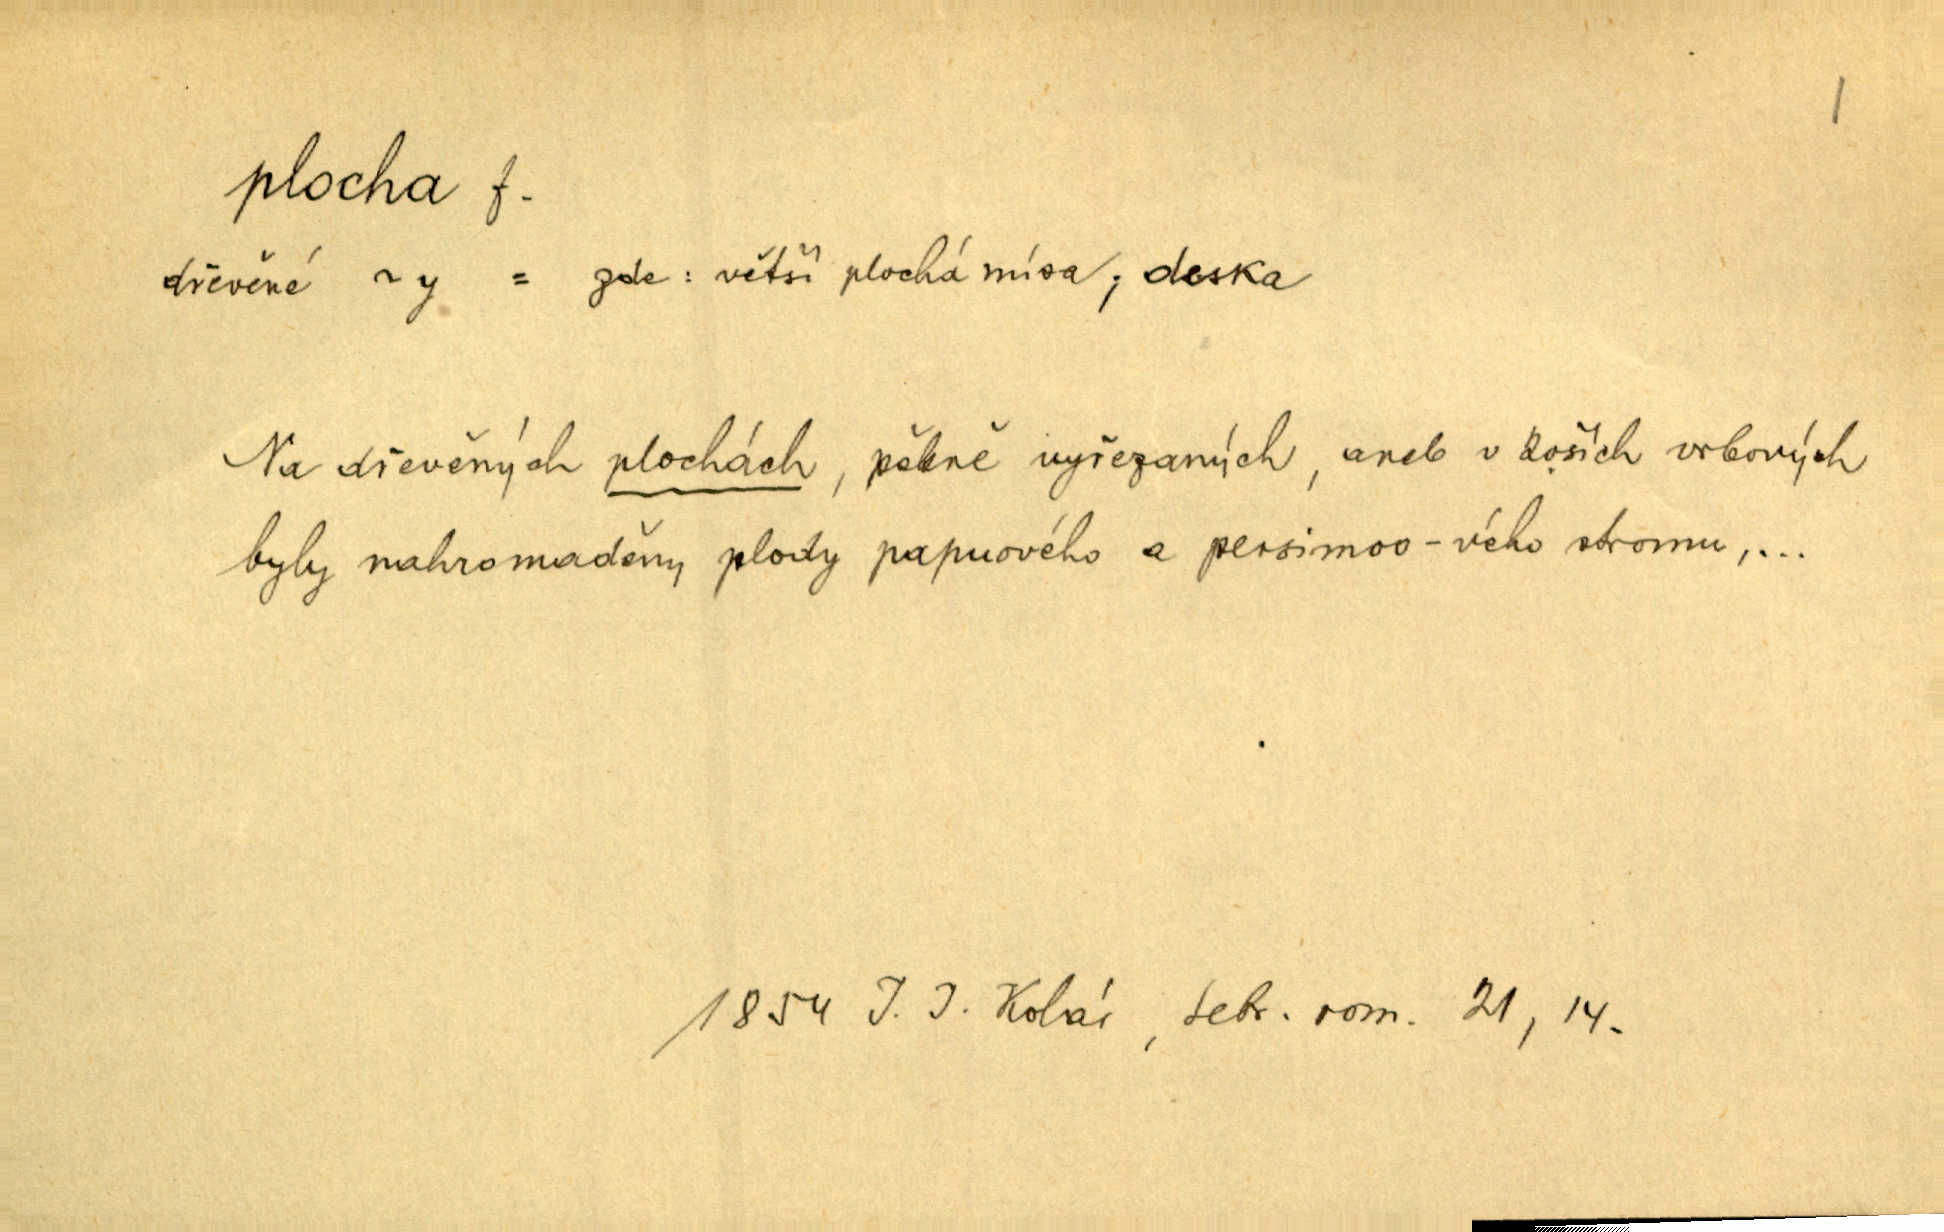 1
plocha f.
dřevěné ~y = zde: větší plochá mísa; deska
Na dřevěných plochách, pěkně vyřezaných, aneb v koších vrbových
byly nahromaděny plody papuového a persimoo-vého stromu,...
1854 J. J. Kolár, Sebr. rom. 21, 14.